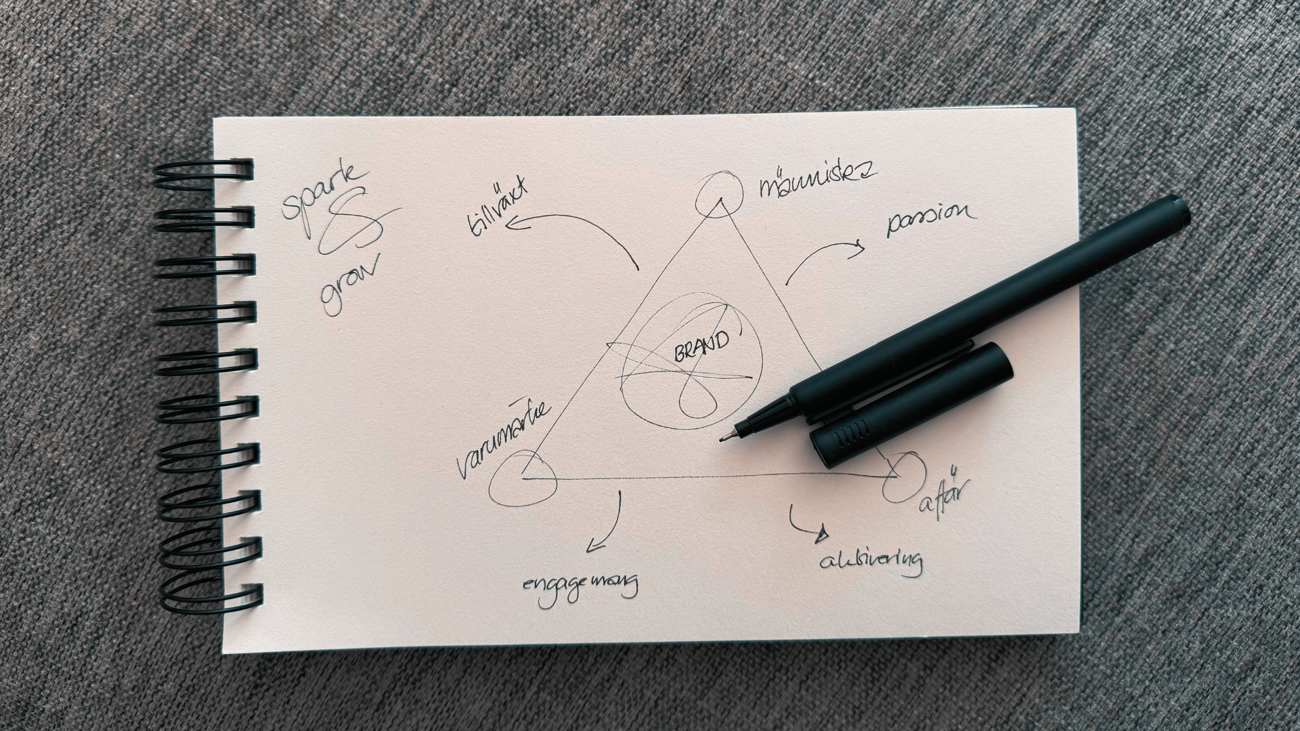 spark
&
grow
tillväxt
människa
passion
BRAND
varumärke
affär
engagemang
aktivering